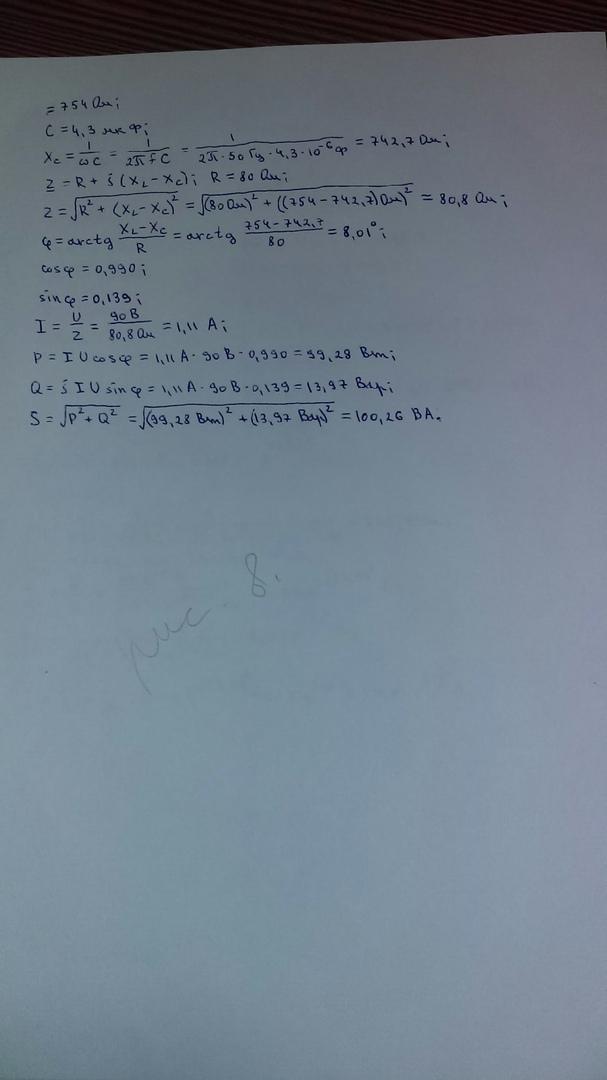 = 754 Ом;
C = 4,3 мкФ;
X_C = 1/ωC = 1/2πfC = 1/2π · 50 Гц · 4,3 · 10⁻⁶ Ф = 742,7 Ом;
Z = R + j (X_L − X_C); R = 80 Ом;
Z = √R² + (X_L − X_C)² = √(80 Ом)² + ((754 − 742,7) Ом)² = 80,8 Ом;
φ = arctg X_L − X_C/R = arctg 754 − 742,7/80 = 8,01°;
cosφ = 0,990;
sinφ = 0,139;
I = U/Z = 90В/80,8 Ом = 1,11 А;
P = I U cosφ = 1,11 А · 90 В · 0,990 = 99,28 Вт;
Q = j I U sinφ = 1,11 А · 90 В · 0,139 = 13,97 Вар;
S = √P² + Q² = √(99,28 Вт)² + (13,97 Вар)² = 100,26 ВА.
рис. 8.